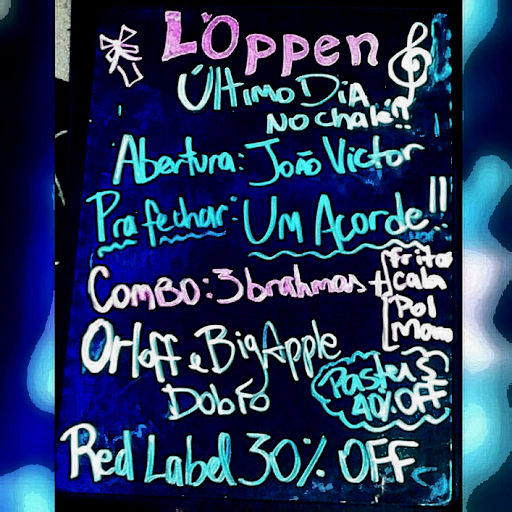 LOppen
Último DiA
No chalé!!
Abertura: João Victor
Pra fechar: UM Acorde!!
ComBO: 3 brahmas +
Fritas
Cala
Pol
Mam
Orloff e Big Apple
DobRo
Pasteis
40% OFF
Red Label 30% OFF